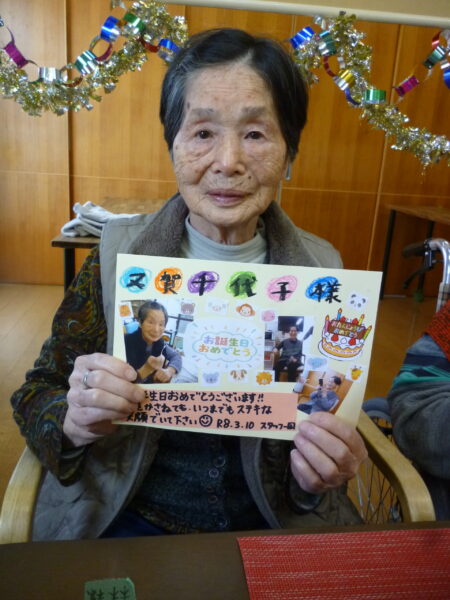 又賀千代子様
お誕生日
おめでとう
おたんじょうび
おめでとう
生日おめでとうございます!!
かさねても、いつまでもステキな
笑顔でいて下さい R8.3.10 スタッフ一同